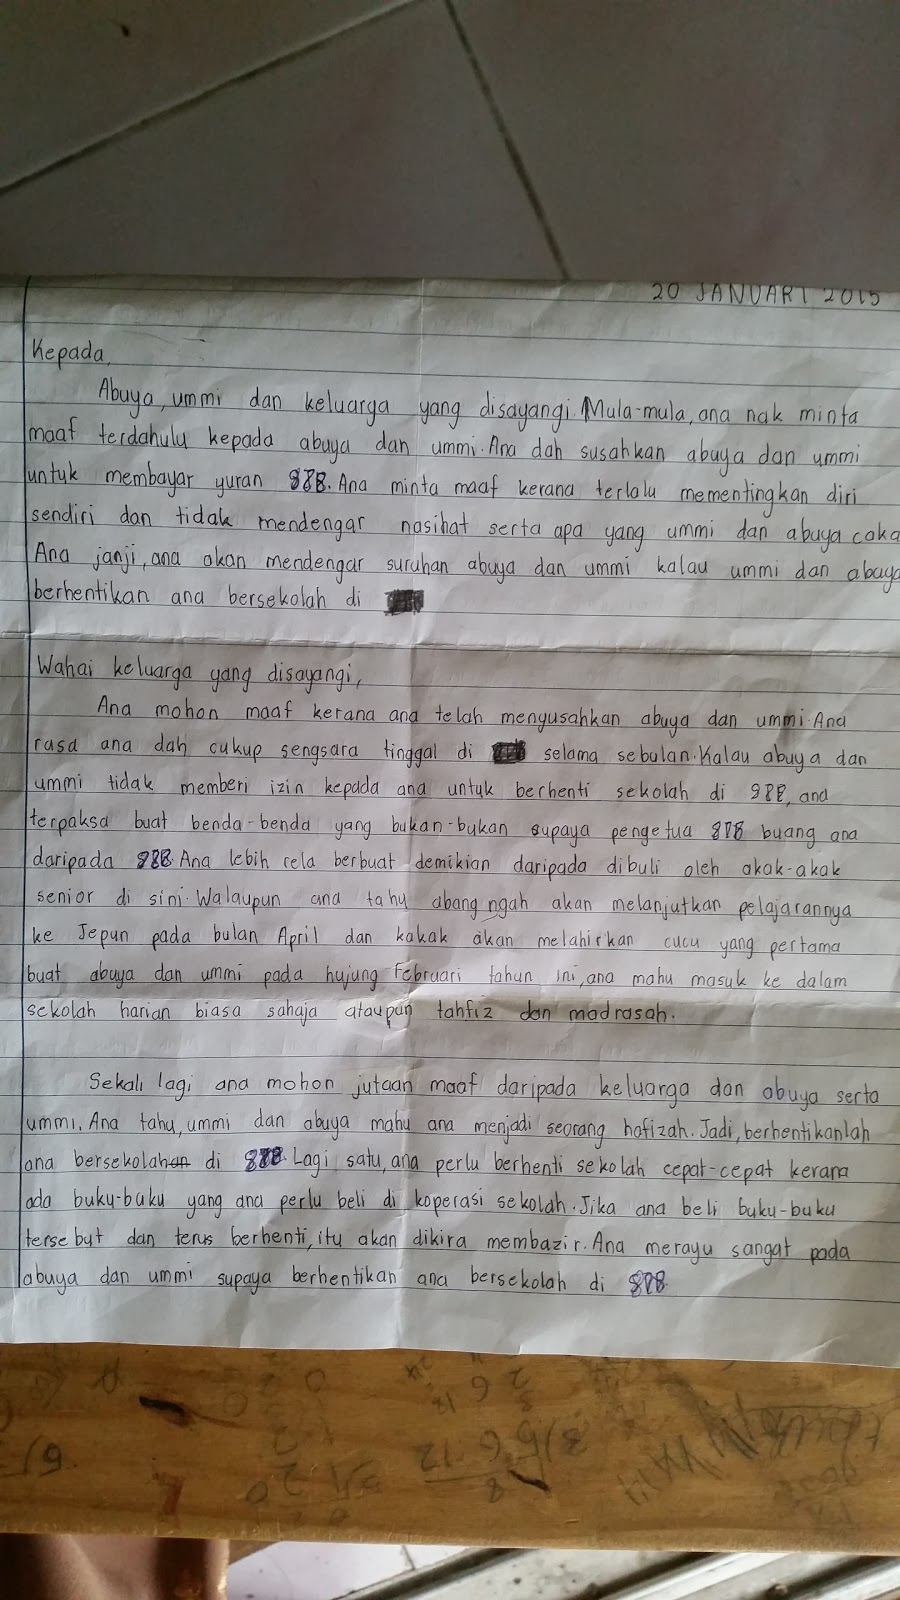 20 JANUARI 2015
Kepada,
Abuya, ummi dan keluarga yang disayangi. Mula-mula, ana nak minta
maaf terdahulu kepada abuya dan ummi. Ana dah susahkan abuya dan ummi
untuk membayar yuran. Ana minta maaf kerana terlalu mementingkan diri
sendiri dan tidak mendengar nasihat serta apa yang ummi dan abuya caka
Ana janji, ana akan mendengar suruhan abuya dan ummi kalau ummi dan abuya
berhentikan ana bersekolah di
Wahai keluarga yang disayangi,
Ana mohon maaf kerana ana telah menyusahkan abuya dan ummi. Ana
rasa ana dah cukup sengsara tinggal di selama sebulan. Kalau abuya dan
ummi tidak memberi izin kepada ana untuk berhenti sekolah di, ana
terpaksa buat benda-benda yang bukan-bukan supaya pengetua buang ana
daripada. Ana lebih rela berbuat demikian daripada dibuli oleh akak-akak
senior di sini. Walaupun ana tahu abang ngah akan melanjutkan pelajarannya
ke Jepun pada bulan April dan kakak akan melahirkan cucu yang pertama
buat abuya dan ummi pada hujung Februari tahun ini, ana mahu masuk ke dalam
sekolah harian biasa sahaja ataupun tahfiz dan madrasah.
Sekali lagi ana mohon jutaan maaf daripada keluarga dan abuya serta
ummi. Ana tahu, ummi dan abuya mahu ana menjadi seorang hafizah. Jadi, berhentikanlah
ana bersekolah di. Lagi satu, ana perlu berhenti sekolah cepat-cepat kerana
ada buku-buku yang ana perlu beli di koperasi sekolah. Jika ana beli buku-buku
tersebut dan terus berhenti, itu akan dikira membazir. Ana merayu sangat pada
abuya dan ummi supaya berhentikan ana bersekolah di